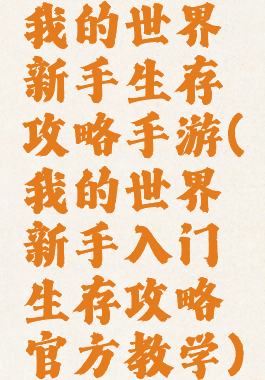 我的世界
新手生存
攻略手游(
我的世界
新手入门
生存攻略
官方教学)